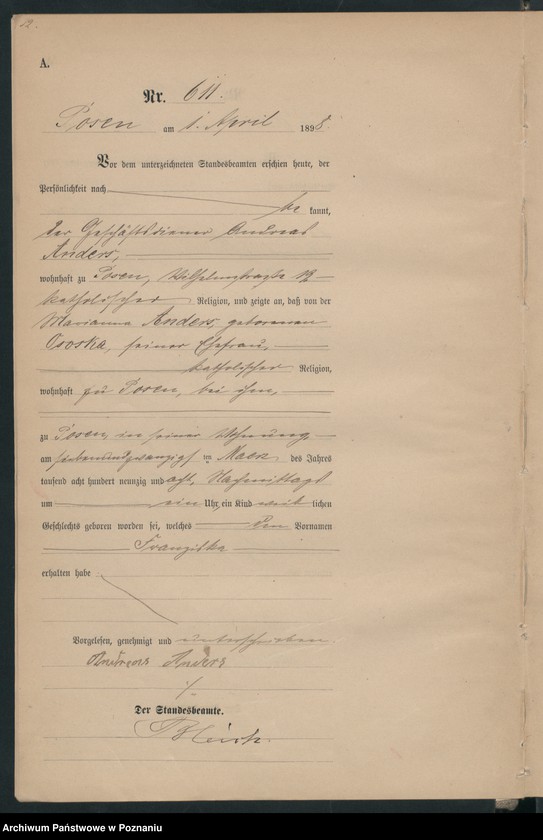 12.
A.
Nr. 611.
Posen am 1. April 1898.
Vor dem unterzeichneten Standesbeamten erschien heute, der
Persönlichkeit nach
be kannt,
der Geschäftsdiener Andreas
Anders,
wohnhaft zu Posen, Wilhelmstraße
katholischer Religion, und zeigte an, daß von der
Marianna Anders, geborenen
Ososka, seiner Ehefrau,
katholischer Religion,
wohnhaft zu Posen, bei ihm,
zu Posen, in seiner Wohnung
am siebenundzwanzigsten im Maerz des Jahres
tausend acht hundert neunzig und acht, Nachmittags
um ein Uhr, ein Kind weib lichen
Geschlechts geboren worden sei, welches den Vornamen
Franziska
erhalten habe
Vorgelesen, genehmigt und unterschrieben
Andreas Anders
Der Standesbeamte.
Archiwum Państwowe w Poznaniu